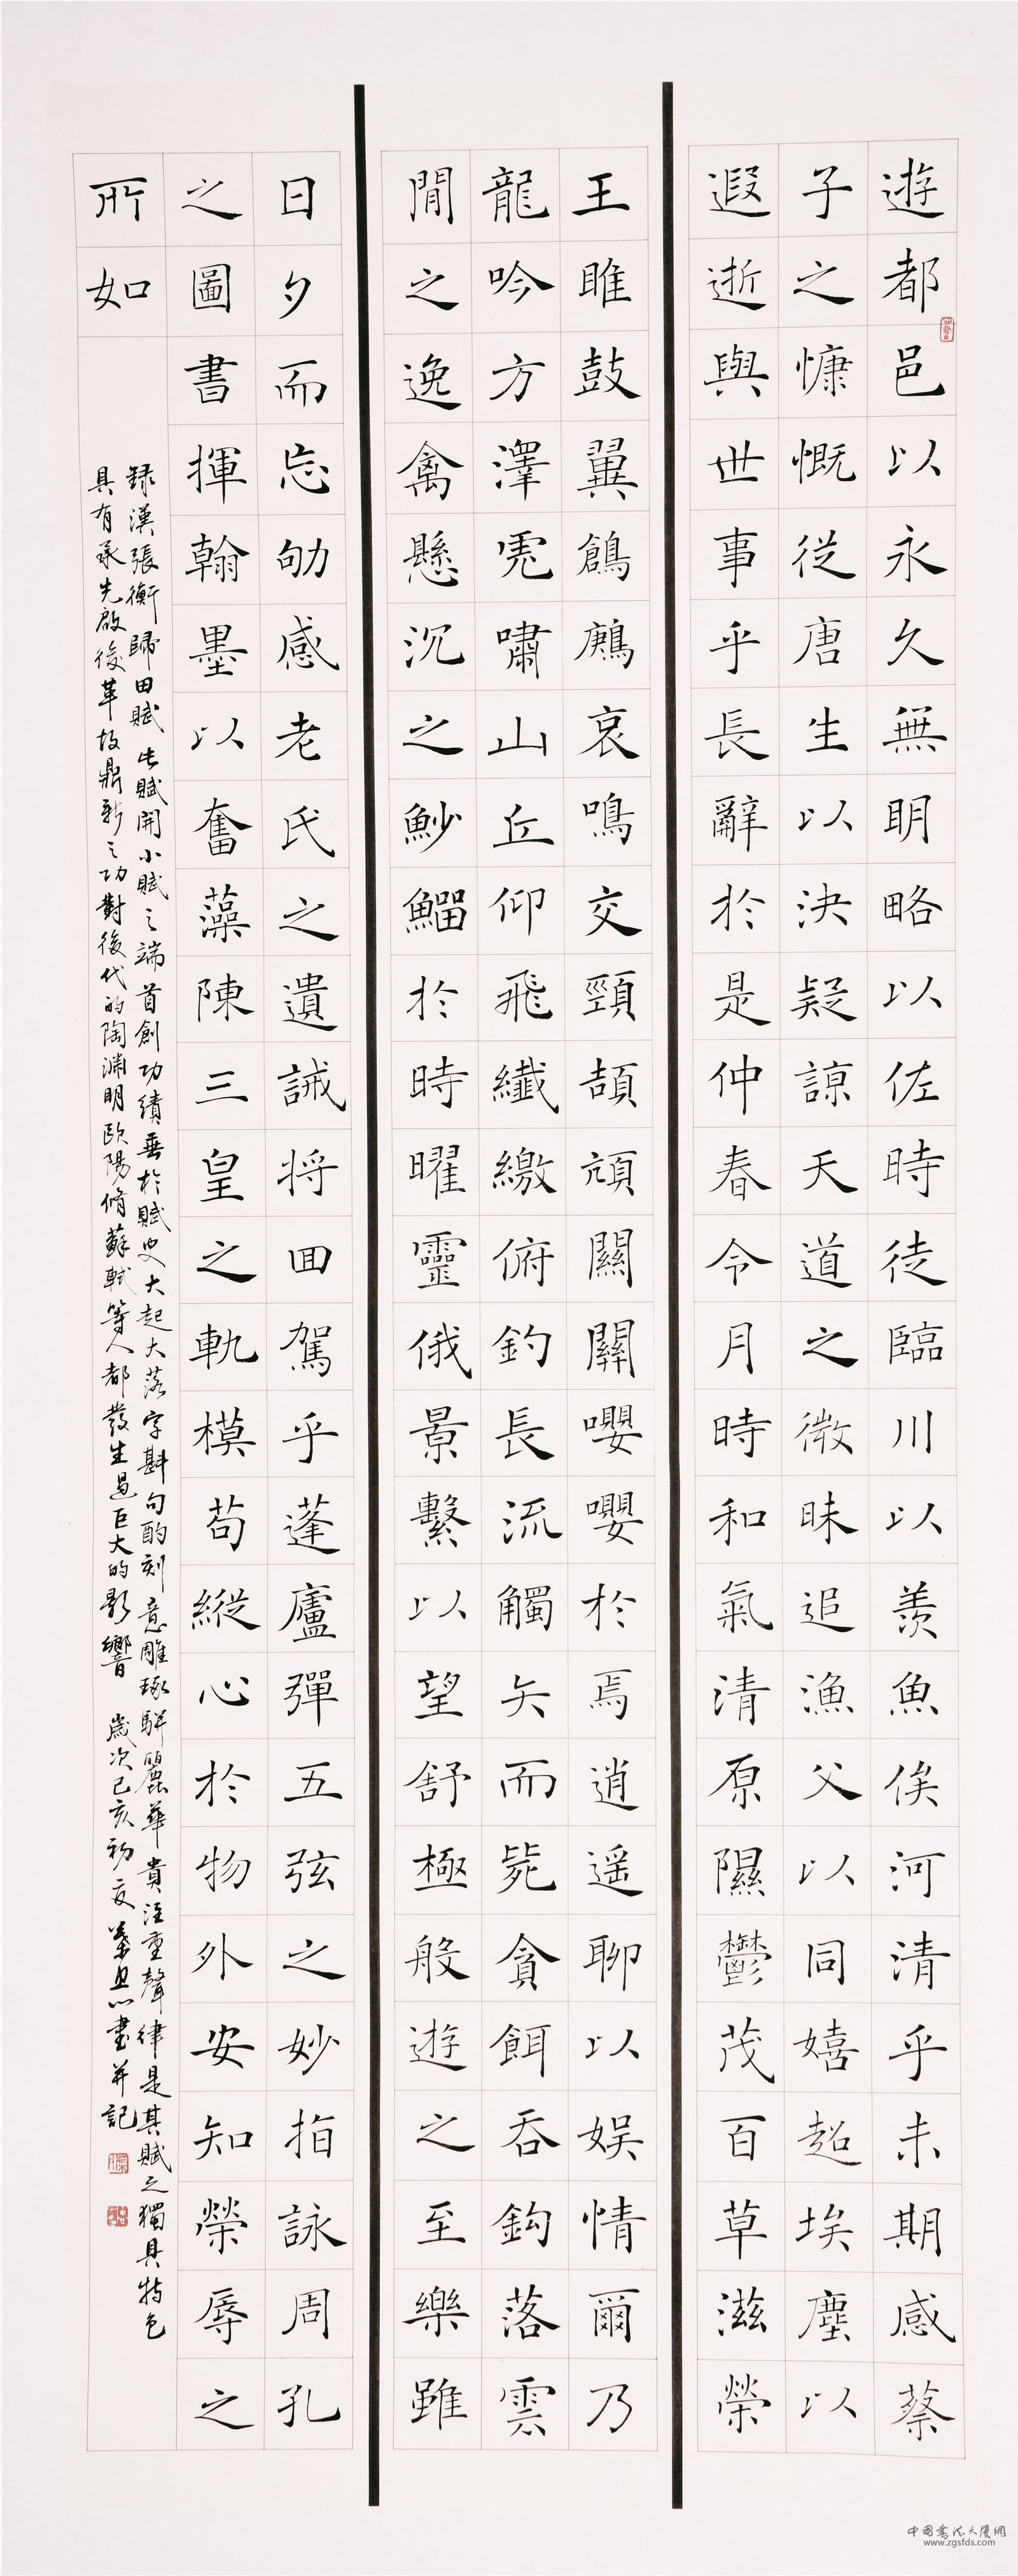 遊都邑以永久無明略以佐時徒臨川以羨魚俟河清乎未期感蔡
子之慷慨從唐生以決疑諒天道之微昧追漁父以同嬉超埃塵以
遐逝與世事乎長辭於是仲春令月時和氣清原隰鬱茂百草滋榮
王雎鼓翼鶬鶊哀鳴交頸頡頏關關嚶嚶於焉逍遥聊以娱情爾乃
龍吟方澤虎嘯山丘仰飛纖繳俯釣長流觸矢而斃貪餌吞鈎落雲
閒之逸禽懸沉之魦鰡於時曜靈俄景繫以望舒極般遊之至樂雖
日夕而忘劬感老氏之遺誡将回駕乎蓬廬彈五弦之妙指詠周孔
之圖書揮翰墨以奮藻陳三皇之軌模苟縱心於物外安知榮辱之
所如
録漢張衡歸田賦此賦開小賦之端首創功績垂於賦史大起大落字斟句酌刻意雕琢駢麗華貴注重聲律是其賦之獨具特色
具有承先啟後革故鼎新之功對後代的陶淵明歐陽脩蘇軾等人都發生過巨大的影響 歲次己亥初夏 書并記
中国書法大厦網
www.zgsfds.com